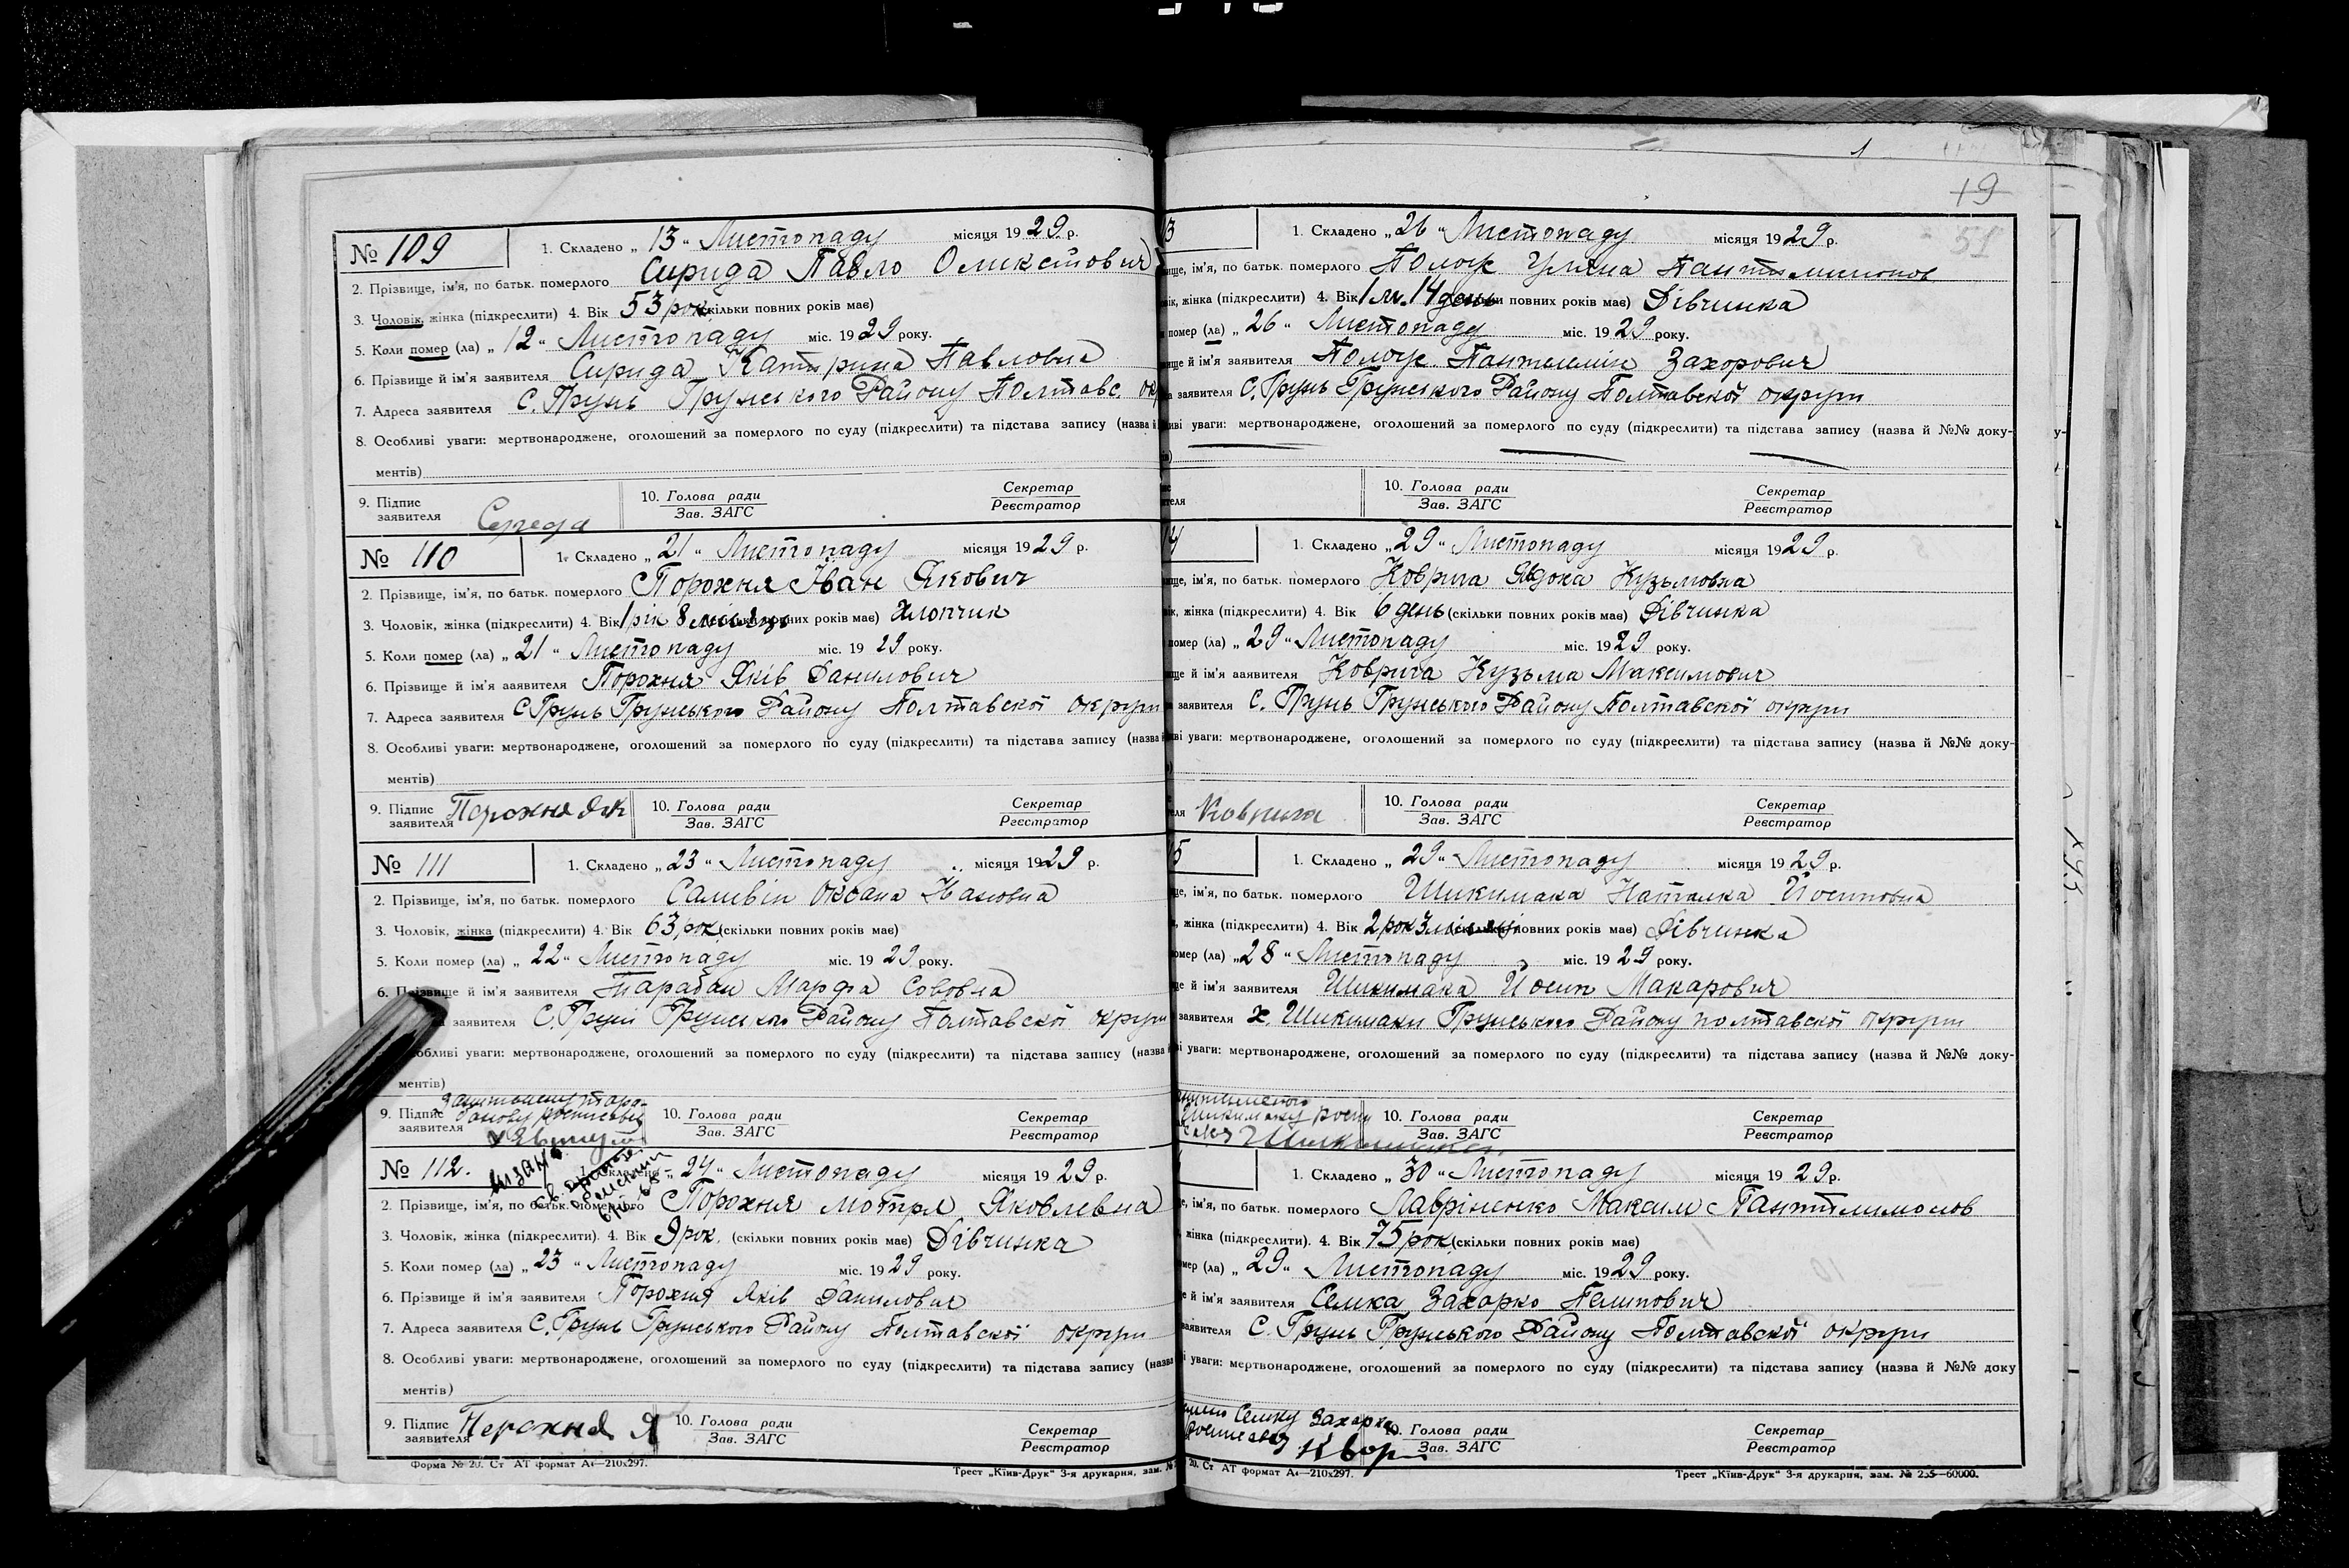 № 109
1. Складено „ 13 “ Листопаду місяця 1929 р.
2. Прізвище, ім'я, по батьк. померлого Сирида Павло Оликсїович
3. Чоловік, жінка (підкреслити) 4. Вік 53 рок (скільки повних років має)
5. Коли помер (ла) „ 12 “ Листопаду міс. 1929 року.
6. Прізвище й ім'я заявителя Сирида Катирина Павловна
7. Адреса заявителя С. Грунь Грунського Району Полтавс. ок
8. Особливі уваги: мертвонароджене, оголошений за померлого по суду (підкреслити) та підстава запису (назва й
ментів)
9. Підпис заявителя Середа
10. Голова ради
Зав. ЗАГС
Секретар
Реєстратор
№ 110
1. Складено „ 21 “ Листопаду місяця 1929 р.
2. Прізвище, ім'я, по батьк. померлого Порохня Іван Якович
3. Чоловік, жінка (підкреслити) 4. Вік 1 рік 8 місяці повних років має) Хлопчик
5. Коли помер (ла) „ 21 “ Листопаду міс. 1929 року.
6. Прізвище й ім'я заявителя Порохня Яків Данилович
7. Адреса заявителя С. Грунь Грунського Району Полтавскої округи
8. Особливі уваги: мертвонароджене, оголошений за померлого по суду (підкреслити) та підстава запису (назва й
ментів)
9. Підпис заявителя Порохня Як
10. Голова ради
Зав. ЗАГС
Секретар
Реєстратор
№ 111
1. Складено „ 23 “ Листопаду місяця 1929 р.
2. Прізвище, ім'я, по батьк. померлого Саливін Оксана
3. Чоловік, жінка (підкреслити) 4. Вік 63 рок (скільки повних років має)
5. Коли помер (ла) „ 22 “ Листопаду міс. 1929 року.
6. Прізвище й ім'я заявителя Тарабан Марфа Сововна
заявителя С. Груні Грунського Району Полтавскої округи
обливі уваги: мертвонароджене, оголошений за померлого по суду (підкреслити) та підстава запису (назва й
ментів)
9. Підпис заявителя
10. Голова ради
Зав. ЗАГС
Секретар
Реєстратор
№ 112.
1. Складено „ 24 “ Листопаду місяця 1929 р.
2. Прізвище, ім'я, по батьк. померлого Порохня Мотря Яковлевна
3. Чоловік, жінка (підкреслити). 4. Вік 9 рок. (скільки повних років має) Дівчинка
5. Коли помер (ла) „ 23 “ Листопаду міс. 1929 року.
6. Прізвище й ім'я заявителя Порохня Яків Данилович
7. Адреса заявителя С. Грунь Грунського Району Полтавскої округи
8. Особливі уваги: мертвонароджене, оголошений за померлого по суду (підкреслити) та підстава запису (назва
ментів)
9. Підпис заявителя Порохня Я
10. Голова ради
Зав. ЗАГС
Секретар
Реєстратор
Форма № 20. Ст АТ формат А4—210х297.
Трест „Київ-Друк“ 3-я друкарня, зам. №
1
19
51
3
1. Складено „ 26 “ Листопаду місяця 1929 р.
ище, ім'я, по батьк. померлого Полоус Уляна Пантилимонов
жінка (підкреслити) 4. Вік 1 м. 14 день повних років має) Дівчинка
помер (ла) „ 26 “ Листопаду міс. 1929 року.
ище й ім'я заявителя Полоус Пантилимін Захорович
заявителя С. Грунь Грунського Району Полтавскої округи
иві уваги: мертвонароджене, оголошений за померлого по суду (підкреслити) та підстава запису (назва й №№ доку-
10. Голова ради
Зав. ЗАГС
Секретар
Реєстратор
4
1. Складено „ 29 “ Листопаду місяця 1929 р.
ище, ім'я, по батьк. померлого Коврига Явдока Кузьмовна
жінка (підкреслити) 4. Вік 6 день (скільки повних років має) Дівчинка
помер (ла) „ 29 “ Листопаду міс. 1929 року.
ище й ім'я заявителя Коврига Кузьма Максимович
заявителя С. Грунь Грунського Району Полтавской округи
иві уваги: мертвонароджене, оголошений за померлого по суду (підкреслити) та підстава запису (назва й №№ доку-
Коврига
10. Голова ради
Зав. ЗАГС
Секретар
Реєстратор
5
1. Складено „ 29 “ Листопаду місяця 1929 р.
ще, ім'я, по батьк. померлого Шикимака Наталка Йосиповна
жінка (підкреслити) 4. Вік 2 рок 3 місяці повних років має) Дівчинка
омер (ла) „ 28 “ Листопаду міс. 1929 року.
ще й ім'я заявителя Шикимака Йосип Макарович
заявителя х. Шикимаки Грунського Району Полтавскої округи
ві уваги: мертвонароджене, оголошений за померлого по суду (підкреслити) та підстава запису (назва й №№ доку-
10. Голова ради
Зав. ЗАГС
Секретар
Реєстратор
1. Складено „ 30 “ Листопаду місяця 1929 р.
ім'я, по батьк. померлого Лавріненко Максим Пантилимонов
жінка (підкреслити). 4. Вік 75 рок (скільки повних років має)
мер (ла) „ 29 “ Листопаду міс. 1929 року.
е й ім'я заявителя Семка Захарко Пилипович
заявителя С. Грунь Грунського Району Полтавскої округи
і уваги: мертвонароджене, оголошений за померлого по суду (підкреслити) та підстава запису (назва й №№ доку
Семку Захарка
10. Голова ради
Зав. ЗАГС
Секретар
Реєстратор
20. Ст АТ формат А4—210х297.
Трест „Київ-Друк“ 3-я друкарня, зам. № 235—60000.